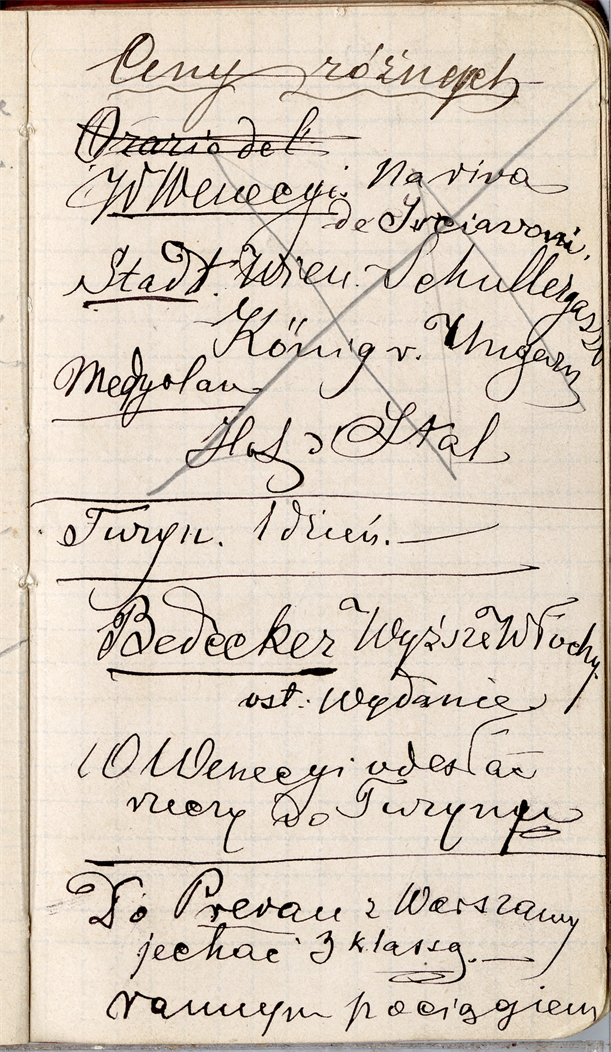 Ceny różnych
Orario del
W Wenecyi. Na riva
de Sciavoni.
Stadt. Wien. Schullergasse 20
König v. Ungarn
Medyolan
Hof d Stal
Turyn. 1 dzień.
Bedecker Wyższe Włochy
ost: wydanie
W Wenecyi odesłać
rzeczy do Turynu
Do Preran z Warszawy
jechać 3 klassą.
rannym pociągiem